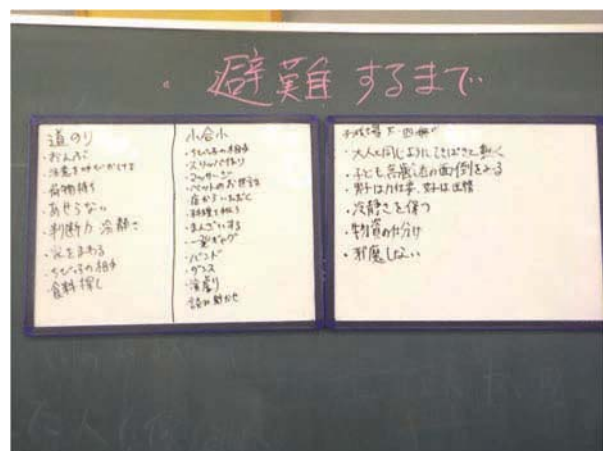 ・避難するまで
道のり
・おんぶ
・注意を呼びかける
・荷物持ち
・あせらない
・判断力 冷静さ
・ちびっ子の相手
・食料探し
小合小
・ちびっ子の相手
・スリッパ作り
・マッサージ
・ペットのお世話
・料理を配る
・まんざいする
・一発ギャグ
・バンド
・ダンス
・演劇
・読み聞かせ
・大人と同じようにてきぱきと動く
・子ども、高齢者の面倒をみる
・男子は力仕事、女子は
・冷静さを保つ
・物資の仕分け
・邪魔しない